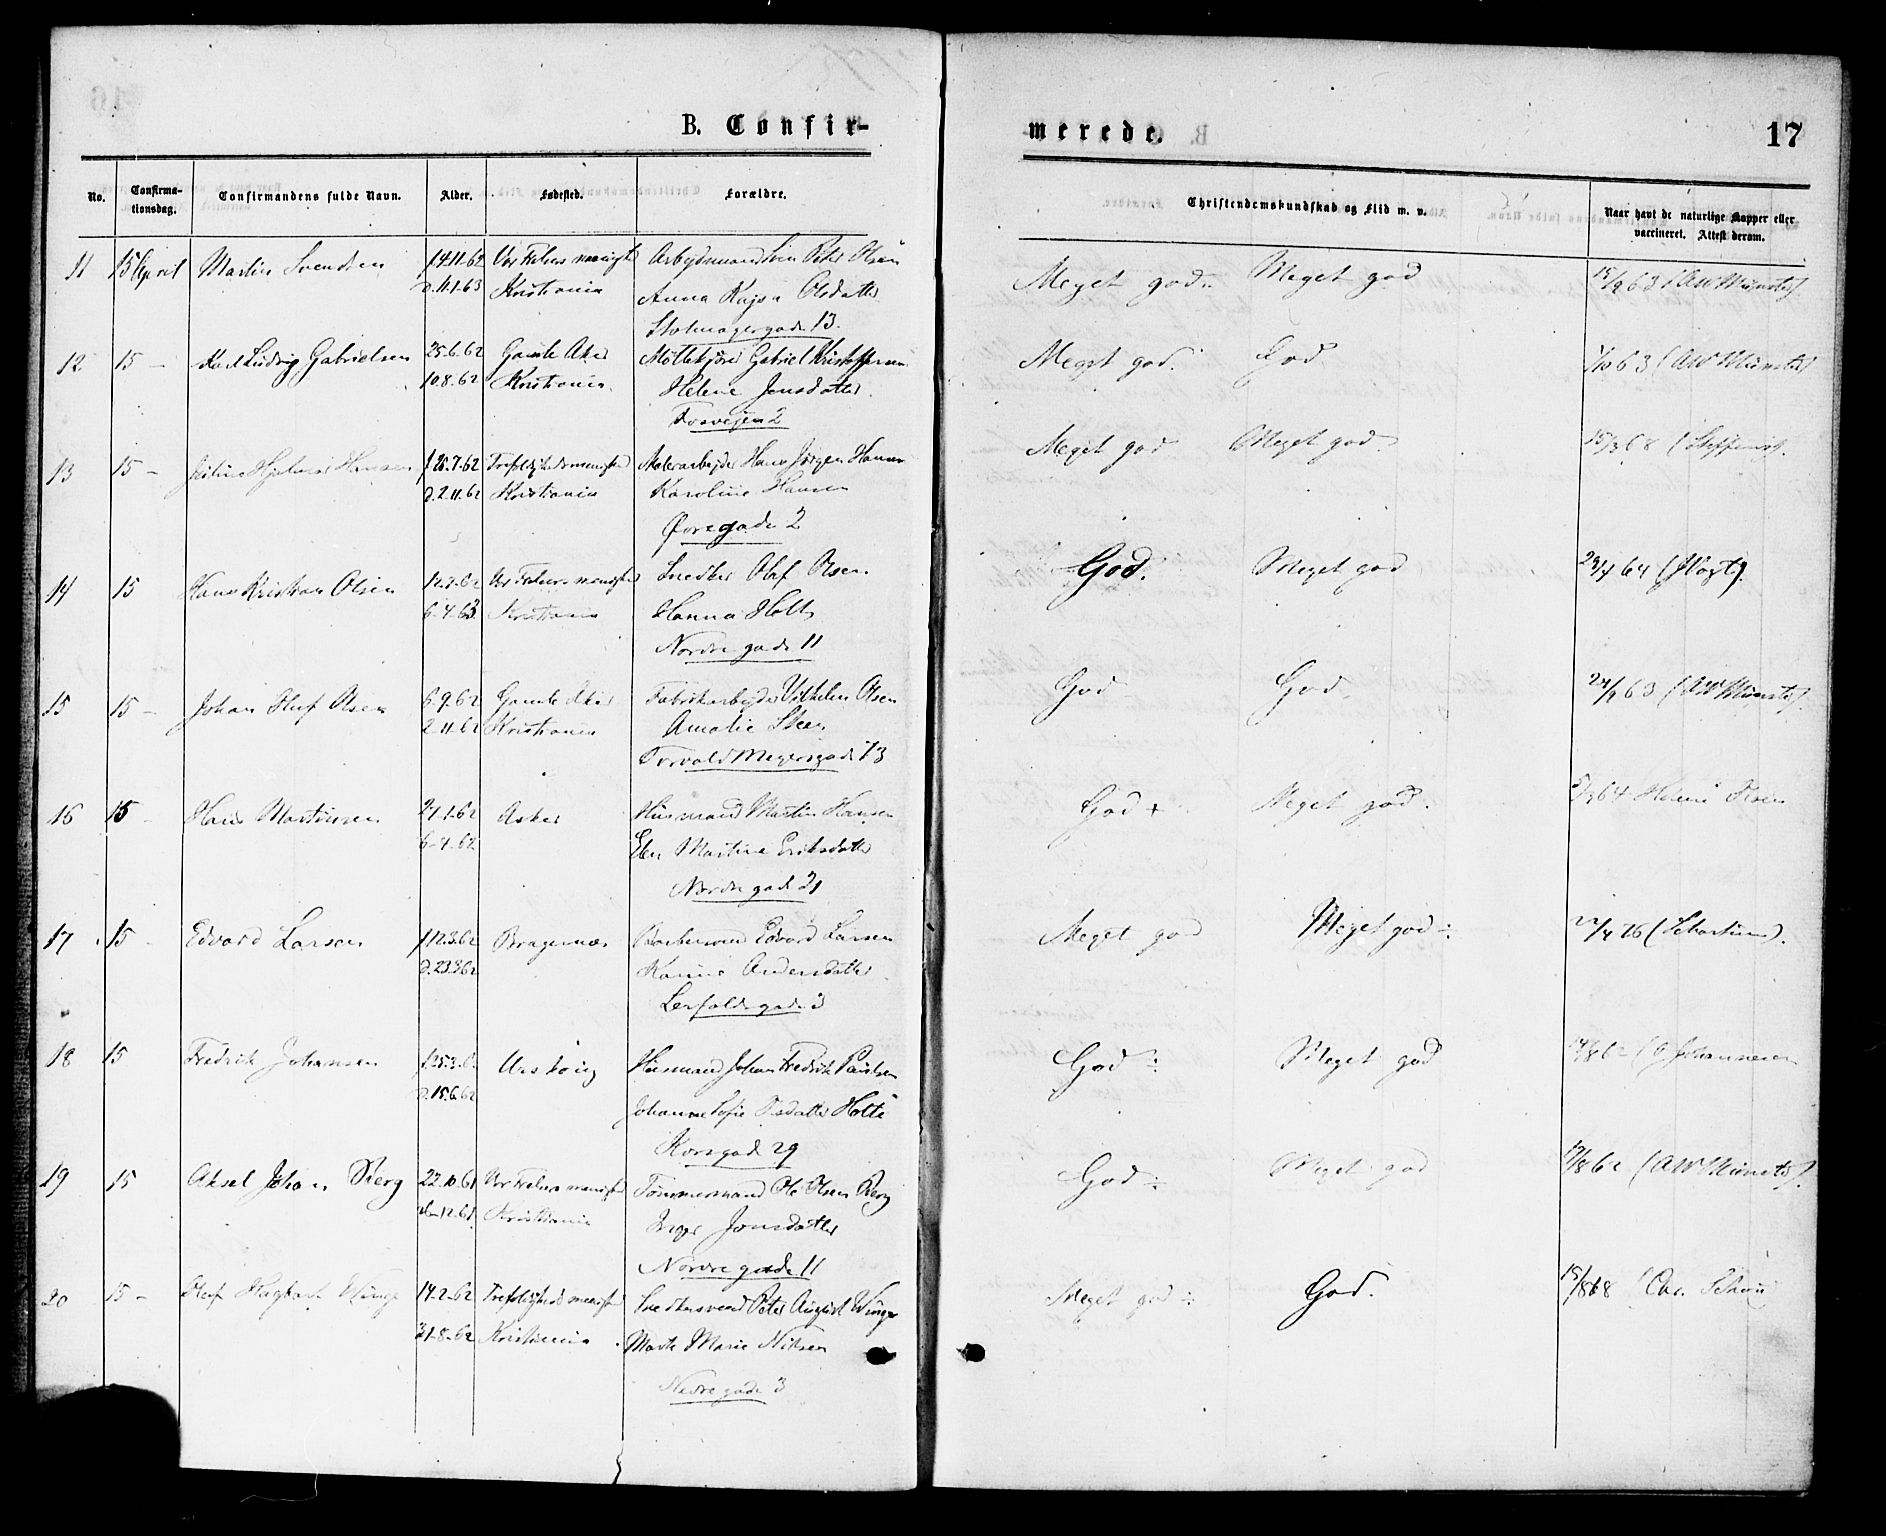 B. Confir-
merede.
17
No.
Confirma-
tionsdag.
Confirmandens fulde Navn.
Alder.
Fødested.
Forældre.
Christendomskundskab og Flid m. v.
Naar havt de naturlige Kopper eller
vaccineret. Attest derom.
11 15 April Martin Svendsen f 14.11.62 Vor Frelsers menighed Arbejdsmand Peter Olsen Meget god Meget god (AW Münster).
d. 11.1.63 Kristiania Anna Kajsa Olsdatter
Stolmagergade 13.
12 15 — Karl Ludvig Gabrielsen 25.6.62 Gamle Aker Møllekjører Gabriel Kristoffersen Meget god. God 63 (AW Münster)
10.8.62 Kristiania. Helene Jensdatter.
2
13 15 — Hjalmar Hansen f 28.7.62 Trefoldighedsmenighed Malerarbejder Hans Jørgen Hansen Meget god Meget god. 15/3 68 (Steffens).
d. 2.11.62 Kristiania Karoline Hansen
Øvregade 2
14 15 Hans Kristian Olsen Vor Frelsers menighed Snedker Olaf Olsen God. Meget god 23/4 64 (Vogt).
6-4-63 Kristiania Hanna Holt
Nordregade 11
15 15 — Johan Oluf Olsen 6.9.62 Gamle Aker Fabrikarbejder Vilhelm Olsen God God. 63 (AW Münster).
2.11.62 Kristiania Amalie
Torvald Meyersgade 73
16 15 — Hans Martinsen 1.62 Asker Husmand Martin Hansen God + Meget god. 64 Helene Olsen
6-4-62 Martine Eriksdatter
Nordregade 21
17 15 Edvard Larsen f 12.3.62 Bragernæs Edvard Larsen Meget god Meget god ÷ 76 (Schartum).
d. 23.3.62 Karine Andersdatter
Lerfaldsgade 3
18 15 Fredrik Johansen f 25.3.62 Urskoug Husmand Johan Fredrik Paulsen God ÷ Meget god 62 (Johannesen
d. 15.6.62 Johanne Sofie Holte
Korsgade 29
19 15 Aksel Johan Berg 22.10.61 Vor Frelsers menighed Tømmermand Ole Olsen Berg God ÷ Meget god 19/8 62 (AW Münster).
12.61 Kristiania Inger Jonsdatter
Nordregade 11
20 15 — Oluf Hagbart Winge 14-2-62 Trefoldighedsmenighed Snedkersvend Peter August Winge Meget god ÷ God. 15/8 68 (Chr. Schou
31-8-62 Kristiania. Marte Marie Nilsen
Nedregade 3